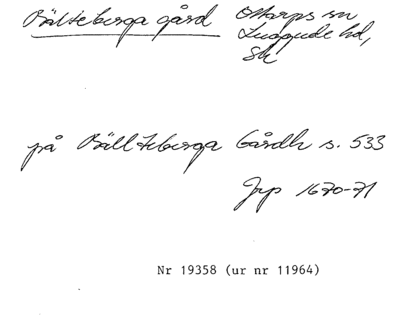 Bälteberga gård Ottarps sn
Luggude hd,
Sk
på Bällteberga Gårdh s. 533
Jrp 1670-71
Nr 19358 (ur nr 11964)